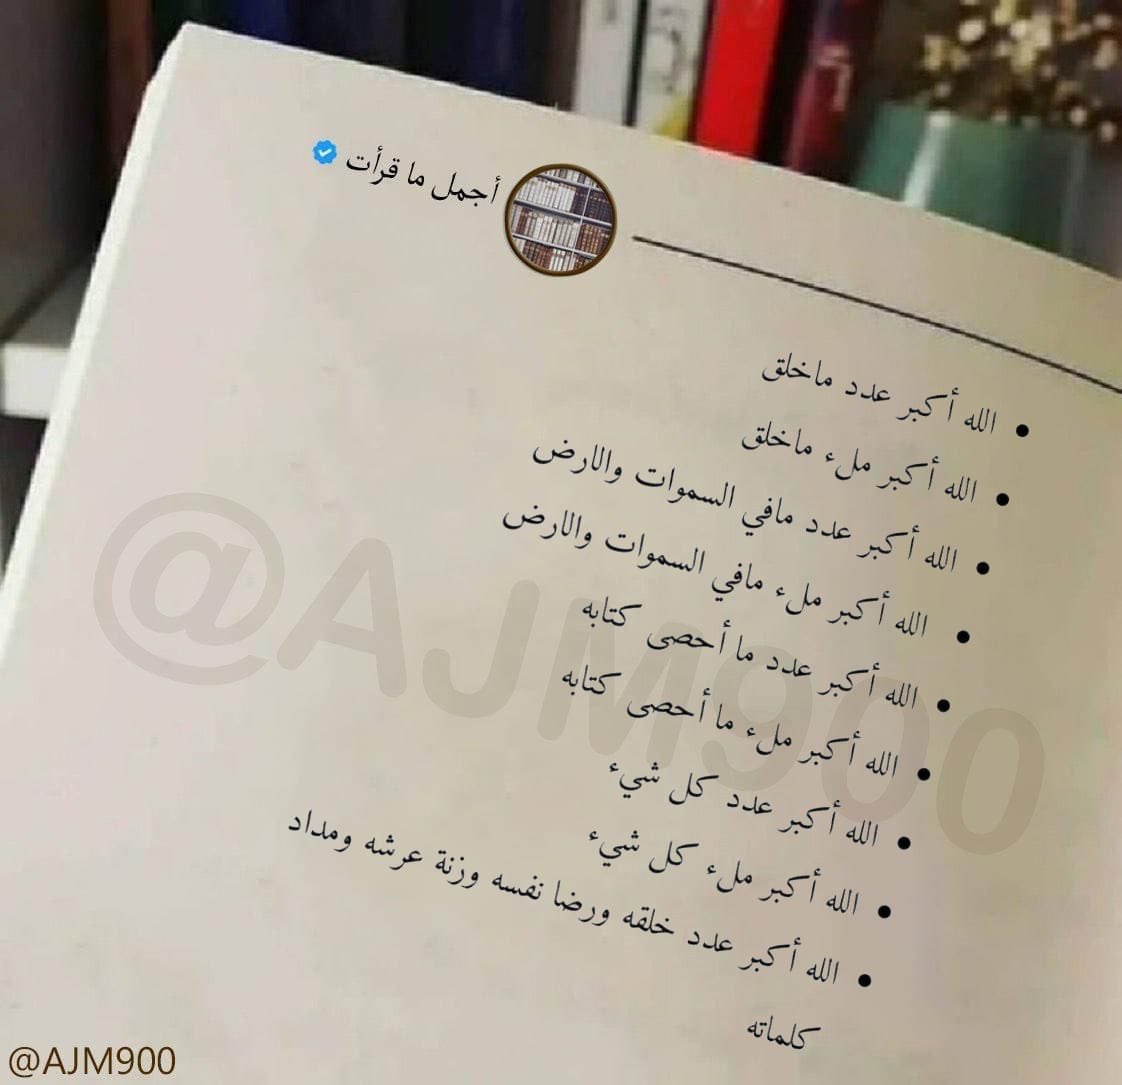 أجمل ما قرأت
• الله أكبر عدد ماخلق
• الله أكبر ملء ماخلق
• الله أكبر عدد مافي السموات والارض
• الله أكبر ملء مافي السموات والارض
• الله أكبر عدد ما أحصى كتابه
• الله أكبر ملء ما أحصى كتابه
• الله أكبر عدد كل شيء
• الله أكبر ملء كل شيء
• الله أكبر عدد خلقه ورضا نفسه وزنة عرشه ومداد
كلماته
@AJM900
@AJM900